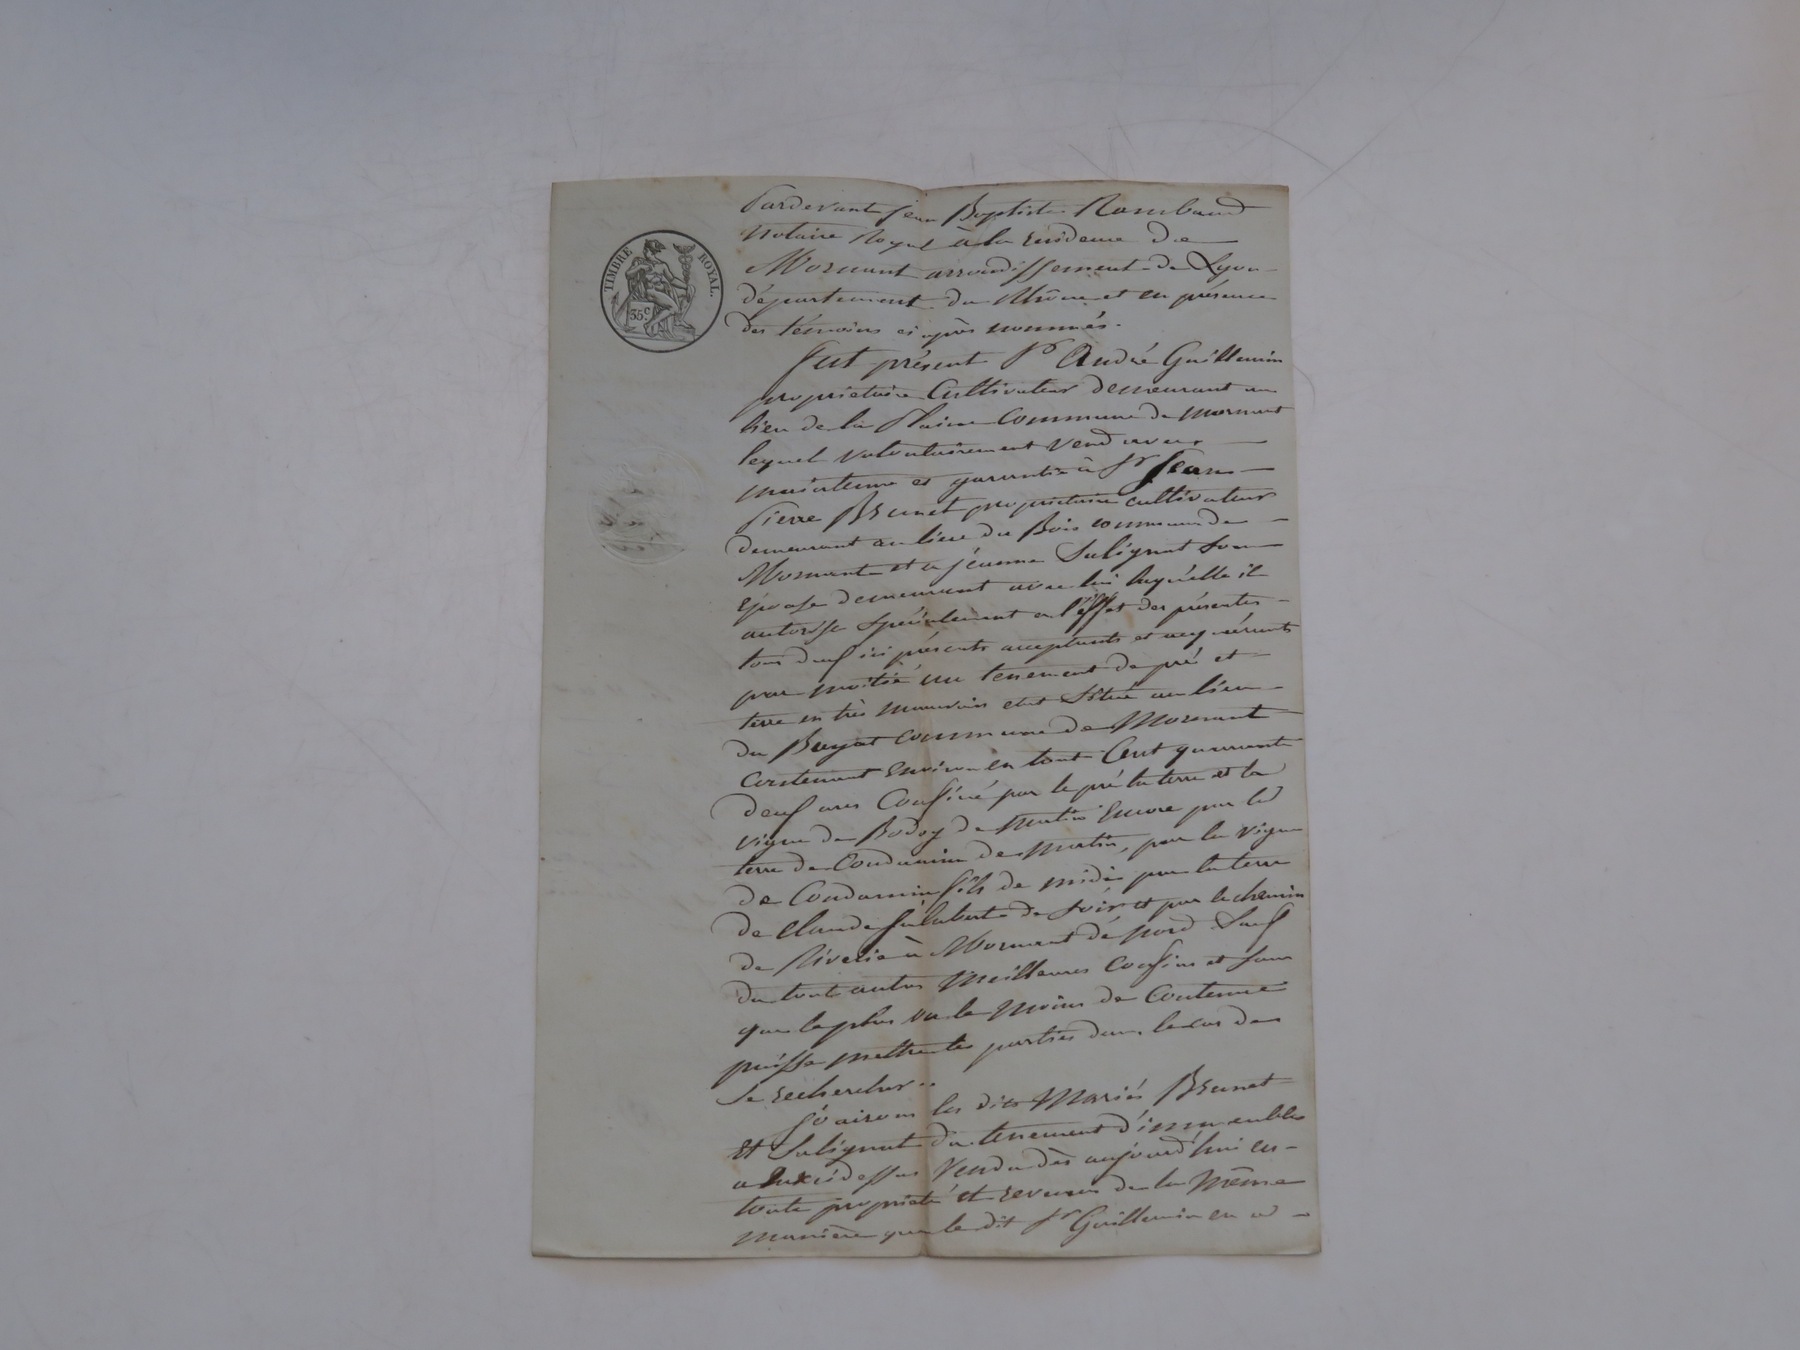 TIMBRE ROYAL.
35c.
Pardevant Jean Baptiste Rambaud
Notaire Royal à la Residence de
Mornant arrondissement de Lyon
département du Rhône et en présence
des témoins ci après nommés.
Fut présent Sr André Guillermin
propriétaire Cultivateur demeurant au
lieu de la Plaine Commune de Mornant
lequel volontairement vend avec
maintenue et garantie à Sr Jean
Pierre Brunet propriétaire cultivateur
demeurant au lieu du Bois commune de
Mornant et à jeanne Salignat son
Epouse demeurant avec lui laquelle il
autorise spécialement à l'effet des présentes
tous deux ici présents acceptants et acquérants
par moitié un tenement de pré et
terre en très mauvais etat Situé au lieu
du Buyat commune de Mornant
Contenant Environ en tout Cent quarante
deux ares Confiné par le pré la terre et la
vigne de Bodoy de Matin Encore par la
terre de Condamin de Matin, par la vigne
de Condamin fils de midi par la terre
de Claude de Soir et par le chemin
de Riverie à Mornant de Nord Sauf
de tout autres Meilleures Confins et Sans
que le plus ou le Moins de Contenue
puisse mettre les parties dans le cas de
Se rechercher..
Jouiront les dits Mariés Brunet
Et Salignat du tenement d'immeubles
a Eux ci dessus Vendu dès aujourd'hui en
toute propriété et revenus de la Même
Manière que le dit Sr Guillermin en a